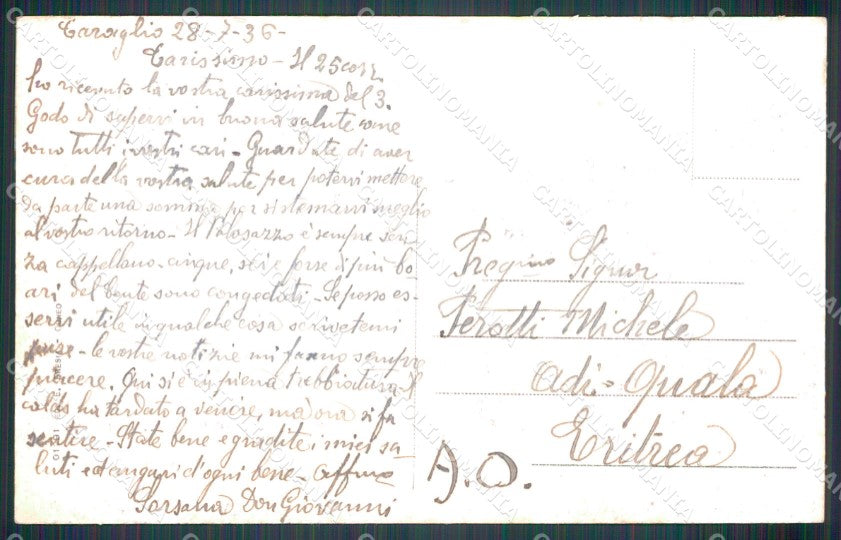 Caraglio 28-7-36-
Carissimo - Il 25 corr.
ho ricevuto la vostra carissima del 3.
Godo di sapervi in buona salute come
sono tutti i vostri cari - Guardate di aver
cura della vostra salute per potervi mettere
da parte una somma per sistemarvi meglio
al vostro ritorno - Il è sempre sen
za cappellano - cinque, sei e forse più bo
ari del Conte sono congedati - Se posso es-
servi utile in qualche cosa scrivetemi
pure - le vostre notizie mi fanno sempre
piacere. Qui si è in piena trebbiatura - Il
caldo ha tardato a venire, ma ora si fa
sentire - State bene e gradite i miei sa-
luti ed auguri d'ogni bene - Affmo
Don Giovanni
Preg.mo Signor
Perotti Michele
Adi-Quala
Eritrea
A.O.
CARTOLINOMANIA